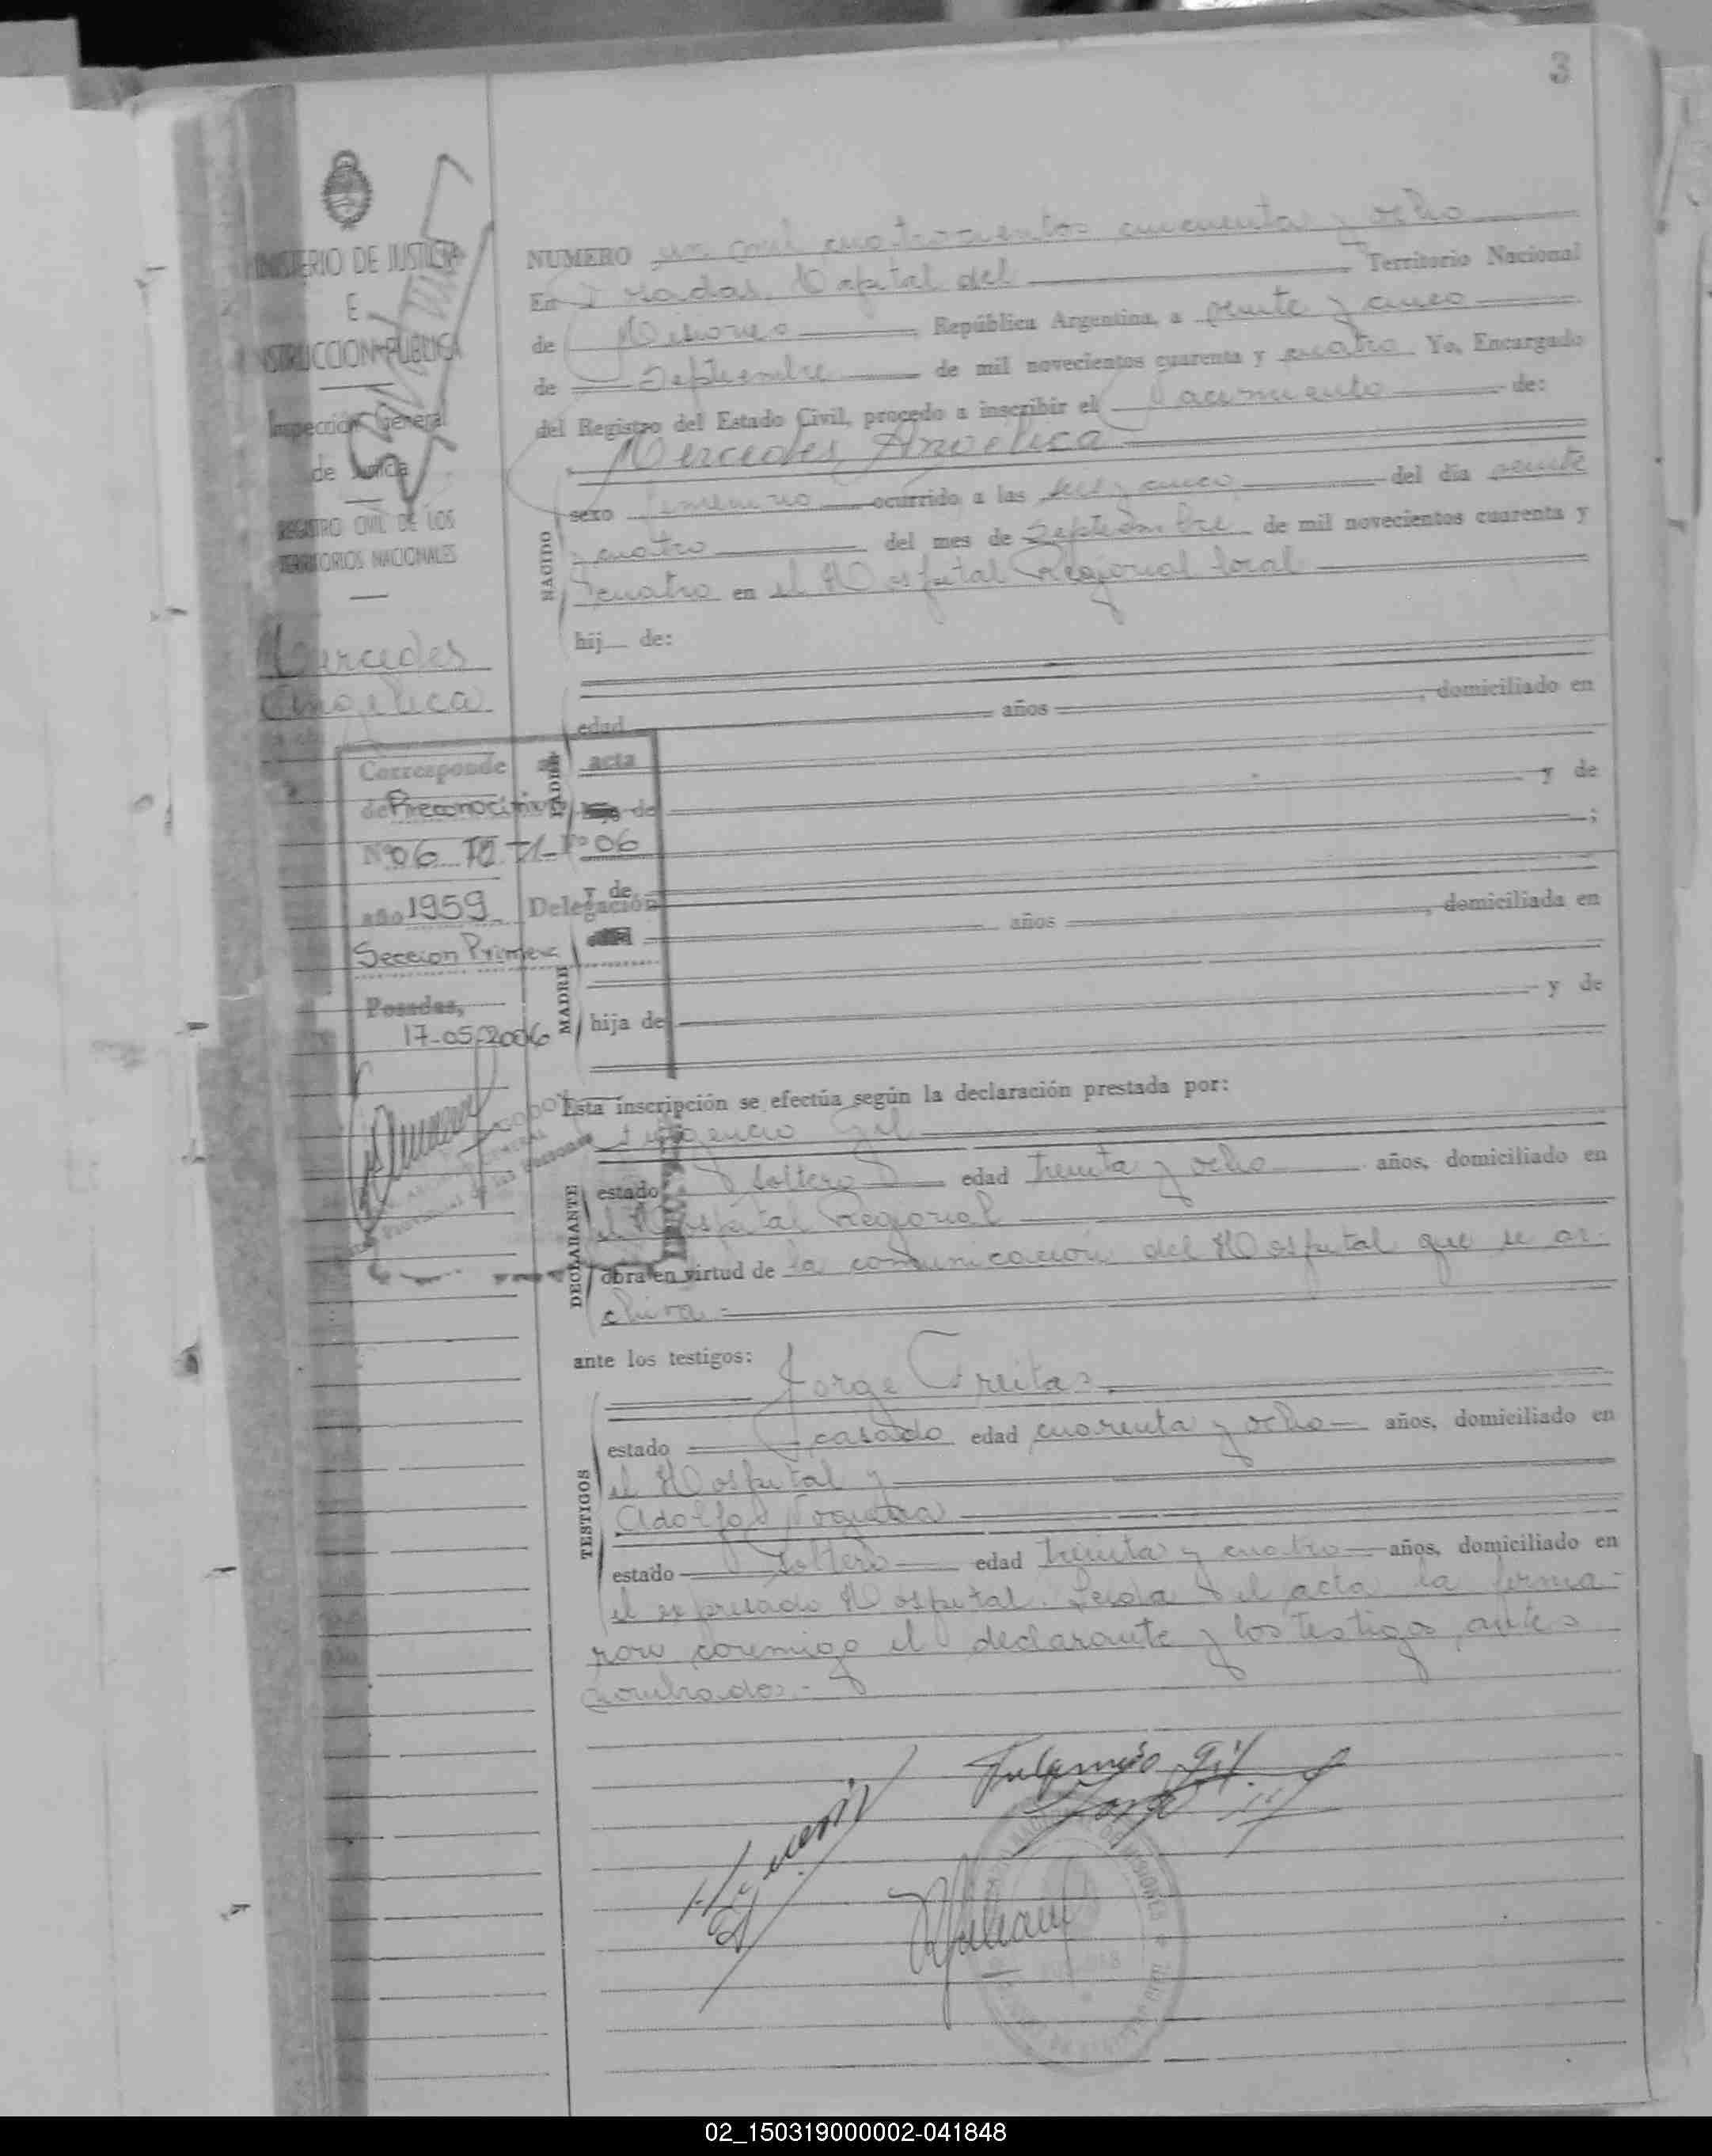 3
MINISTERIO DE JUSTICIA
E
INSTRUCCION PUBLICA
Inspección General
de Justicia
REGISTRO CIVIL DE LOS
TERRITORIOS NACIONALES
Mercedes
Angelica
Corresponde al acta
de Reconocimiento
Nº 06 Tº T1 Fº 06
año 1959 Delegación
Seccion Primera
Posadas,
17-05-2006
NUMERO un mil cuatrocientos cincuenta y ocho
En Posadas, Capital del Territorio Nacional
de Misiones República Argentina, a veinte y cinco
de Septiembre de mil novecientos cuarenta y cuatro Yo, Encargado
del Registro del Estado Civil, procedo a inscribir el Nacimiento de:
Mercedes Angelica
NACIDO
sexo femenino ocurrido a las seis y cinco del día veinte
y cuatro del mes de Septiembre de mil novecientos cuarenta y
cuatro en el Hospital Regional local
hij de:
edad años , domiciliado en
PADRE
hijo de y de
;
y de
años , domiciliada en
MADRE
hija de y de
Esta inscripción se efectúa según la declaración prestada por:
Fulgencio Gil
DECLARANTE
estado soltero edad treinta y ocho años, domiciliado en
el Hospital Regional
obra en virtud de la comunicación del Hospital que se ar-
chiva.-
ante los testigos:
Jorge Freitas
TESTIGOS
estado casado edad cuarenta y ocho años, domiciliado en
el Hospital y
Adolfo Noguera
estado soltero edad treinta y cuatro años, domiciliado en
el expresado Hospital. Leida el acta la firma-
ron conmigo el declarante y los testigos antes
nombrados.-
Fulgencio Gil
Jorge
02_150319000002-041848